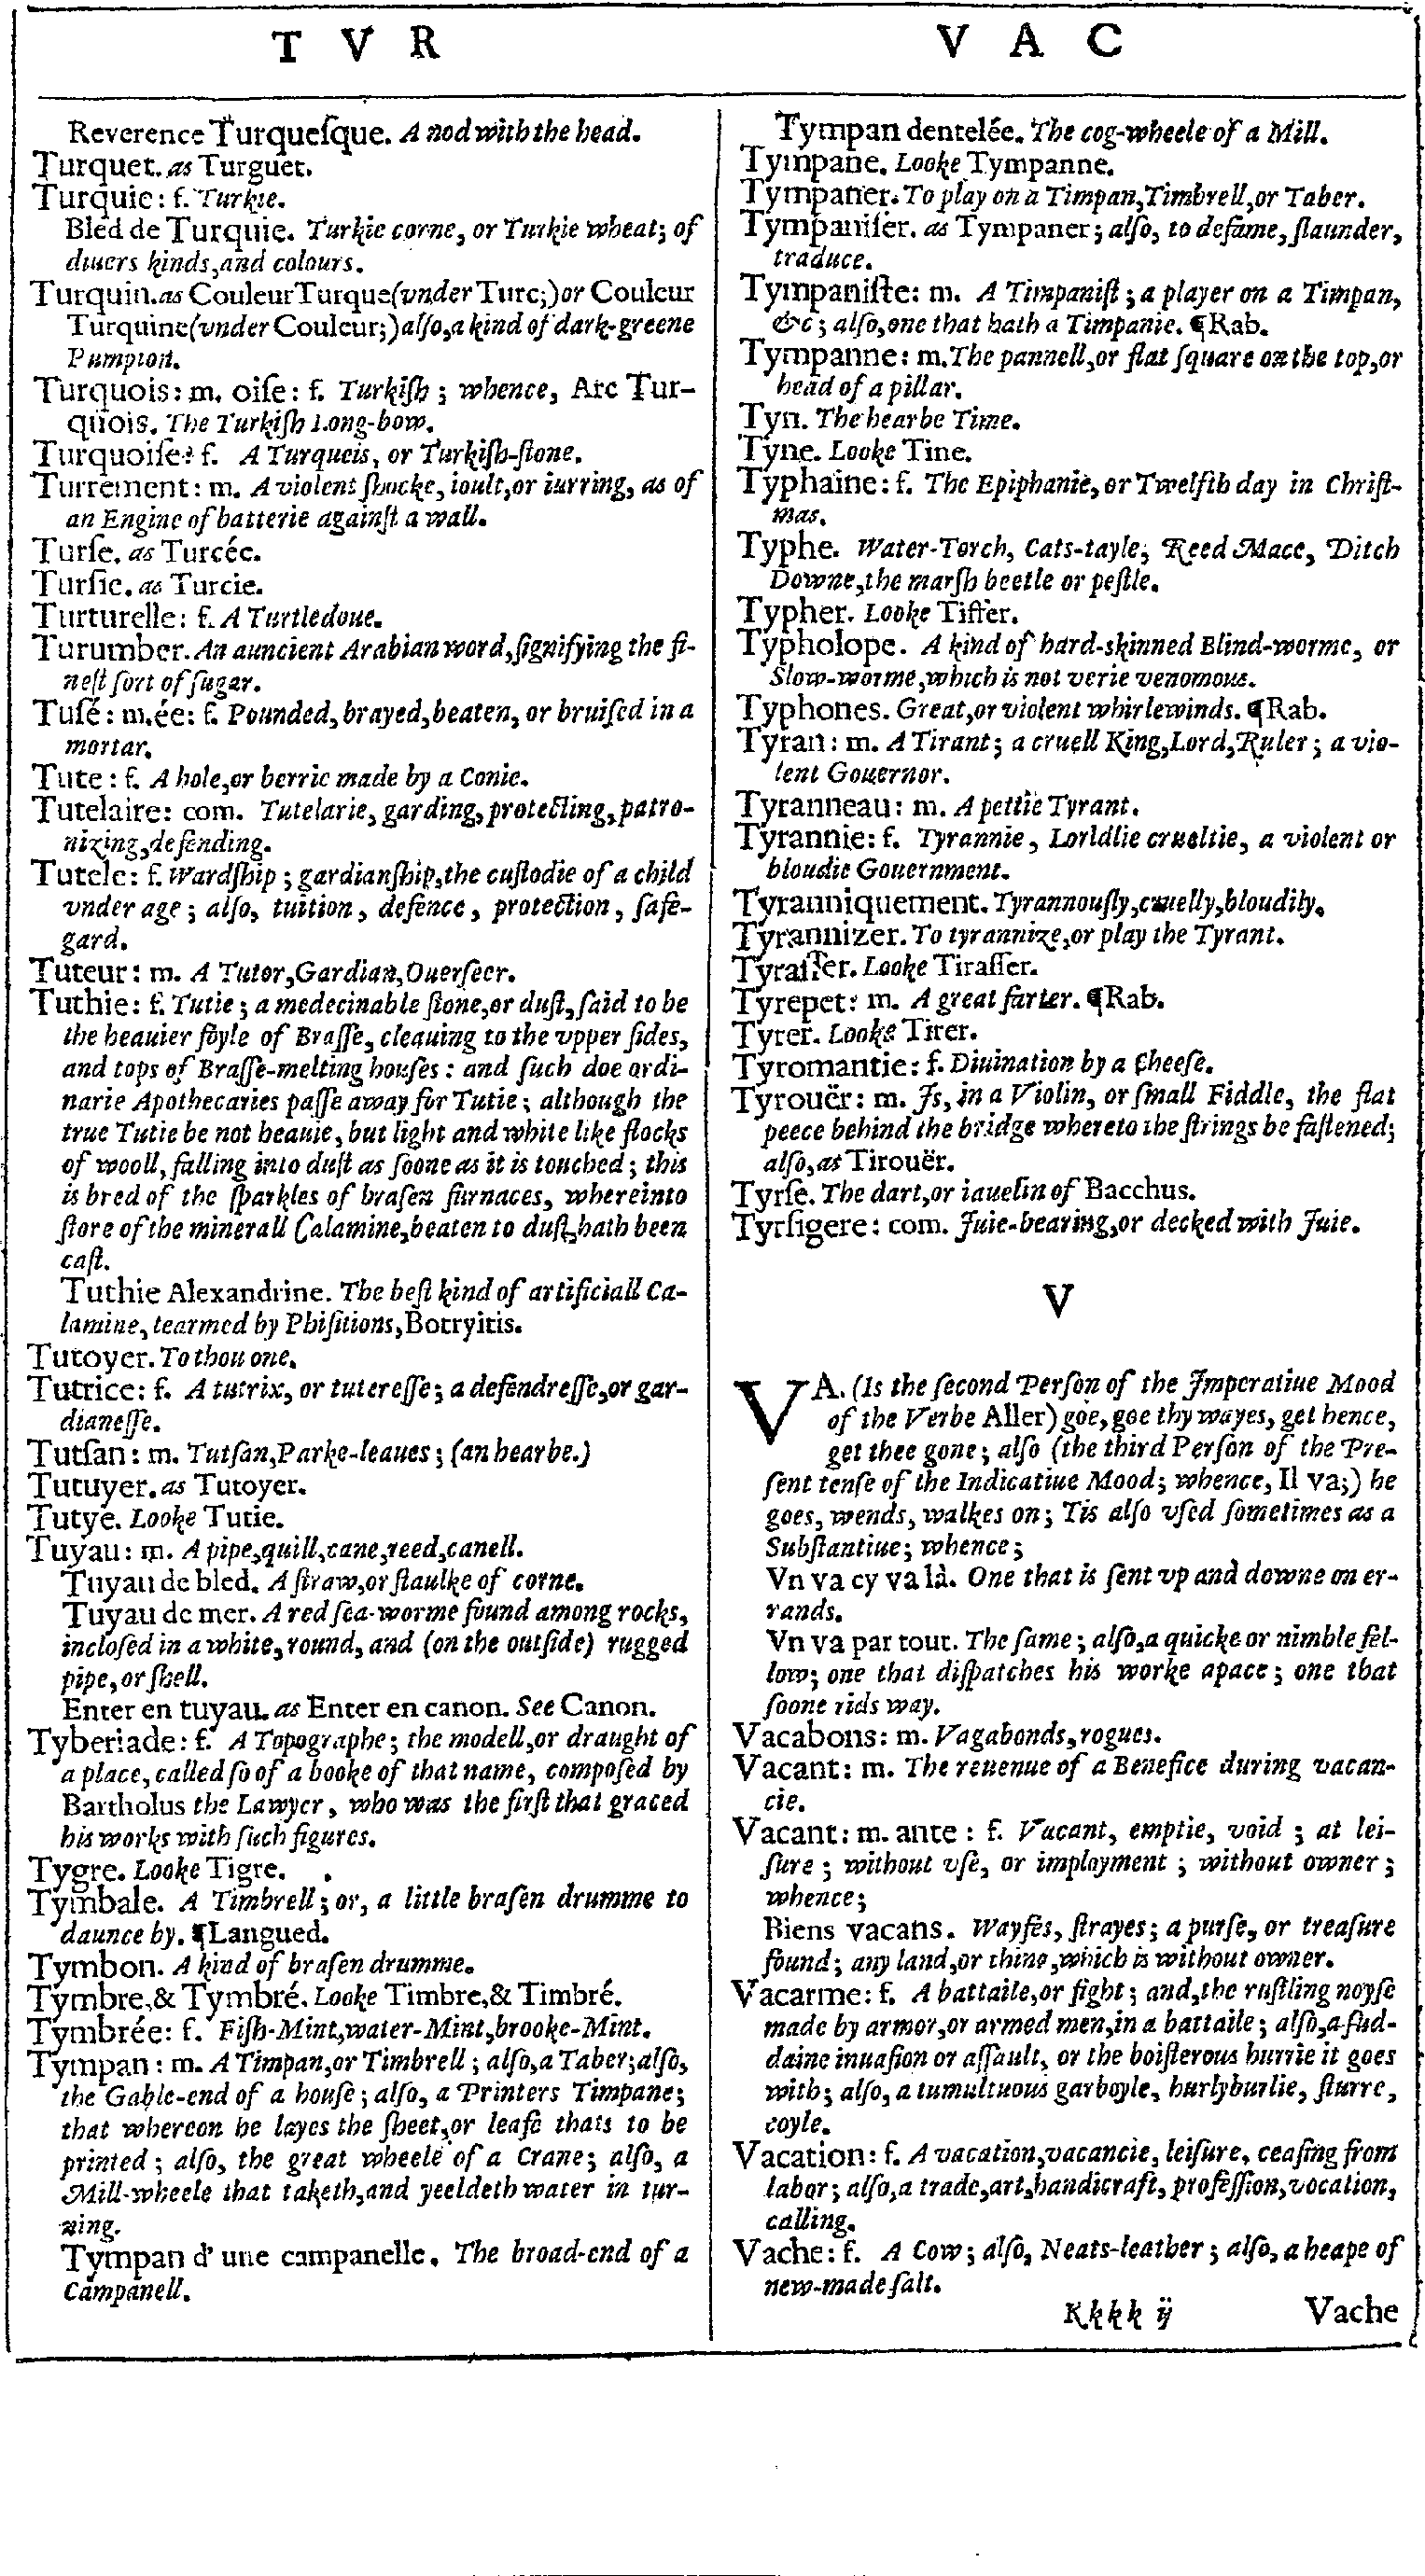 T V R
Reverence Turqueſque. A nod with the head.
Turquet. as Turguet.
Turquie: f. Turkie.
Bled de Turquie. Turkie corne, or Turkie wheat; of
diuers kinds, and colours.
Turquin. as Couleur Turque (vnder Turc;) or Couleur
Turquine (vnder Couleur;) alſo, a kind of dark-greene
Pumpion.
Turquois: m. oiſe: f. Turkiſh; whence, Arc Tur-
quois. The Turkiſh Long-bow.
Turquoiſe: f. A Turqueis, or Turkiſh-ſtone.
Turrement: m. A violent ſhocke, ioult, or iurring, as of
an Engine of batterie againſt a wall.
Turſe. as Turcée.
Turſie. as Turcie.
Turturelle: f. A Turtledoue.
Turumber. An auncient Arabian word, ſignifying the fi-
neſt ſort of ſugar.
Tuſé: m. ée: f. Pounded, brayed, beaten, or bruiſed in a
mortar.
Tute: f. A hole, or berrie made by a Conie.
Tutelaire: com. Tutelarie, garding, protecting, patro-
nizing, defending.
Tutele: f. Wardſhip; gardianſhip, the cuſtodie of a child
vnder age; alſo, tuition, defence, protection, ſafe-
gard.
Tuteur: m. A Tutor, Gardian, Ouerſeer.
Tuthie: f. Tutie; a medecinable ſtone, or duſt, ſaid to be
the heauier foyle of Braſſe, cleauing to the vpper ſides,
and tops of Braſſe-melting houſes: and ſuch doe ordi-
narie Apothecaries paſſe away for Tutie; although the
true Tutie be not heauie, but light and white like flocks
of wooll, falling into duſt as ſoone as it is touched; this
is bred of the ſparkles of braſen furnaces, whereinto
ſtore of the minerall Calamine, beaten to duſt, hath been
caſt.
Tuthie Alexandrine. The beſt kind of artificiall Ca-
lamine, tearmed by Phiſitions, Botryitis.
Tutoyer. To thou one.
Tutrice: f. A tutrix, or tutereſſe; a defendreſſe, or gar-
dianeſſe.
Tutſan: m. Tutſan, Parke-leaues; (an hearbe.)
Tutuyer. as Tutoyer.
Tutye. Looke Tutie.
Tuyau: m. A pipe, quill, cane, reed, canell.
Tuyau de bled. A ſtraw, or ſtaulke of corne.
Tuyau de mer. A red ſea-worme found among rocks,
incloſed in a white, round, and (on the outſide) rugged
pipe, or ſhell.
Enter en tuyau. as Enter en canon. See Canon.
Tyberiade: f. A Topographe; the modell, or draught of
a place, called ſo of a booke of that name, compoſed by
Bartholus the Lawyer, who was the firſt that graced
his works with ſuch figures.
Tygre. Looke Tigre.
Tymbale. A Timbrell; or, a little braſen drumme to
daunce by. ¶Langued.
Tymbon. A kind of braſen drumme.
Tymbre, & Tymbré. Looke Timbre, & Timbré.
Tymbrée: f. Fiſh-Mint, water-Mint, brooke-Mint.
Tympan: m. A Timpan, or Timbrell; alſo, a Taber; alſo,
the Gable-end of a houſe; alſo, a Printers Timpane;
that whereon he layes the ſheet, or leafe thats to be
printed; alſo, the great wheele of a Crane; alſo, a
Mill-wheele that taketh, and yeeldeth water in tur-
ning.
Tympan d'une campanelle. The broad-end of a
Campanell.
V A C
Tympan dentelée. The cog-wheele of a Mill.
Tympane. Looke Tympanne.
Tympaner. To play on a Timpan, Timbrell, or Taber.
Tympaniſer. as Tympaner; alſo, to defame, ſlaunder,
traduce.
Tympaniſte: m. A Timpaniſt; a player on a Timpan,
&c; alſo, one that hath a Timpanie. ¶Rab.
Tympanne: m. The pannell, or flat ſquare on the top, or
head of a pillar.
Tyn. The hearbe Time.
Tyne. Looke Tine.
Typhaine: f. The Epiphanie, or Twelfth day in Chriſt-
mas.
Typhe. Water-Torch, Cats-tayle, Reed Mace, Ditch
Downe, the marſh beetle or peſtle.
Typher. Looke Tiffer.
Typholope. A kind of hard-skinned Blind-worme, or
Slow-worme, which is not verie venomous.
Typhones. Great, or violent whirlewinds. ¶Rab.
Tyran: m. A Tirant; a cruell King, Lord, Ruler; a vio-
lent Gouernor.
Tyranneau: m. A pettie Tyrant.
Tyrannie: f. Tyrannie, Lorldlie crueltie, a violent or
bloudie Gouernment.
Tyranniquement. Tyrannouſly, cruelly, bloudily.
Tyrannizer. To tyrannize, or play the Tyrant.
Tyraſſer. Looke Tiraſſer.
Tyrepet: m. A great farter. ¶Rab.
Tyrer. Looke Tirer.
Tyromantie: f. Diuination by a Cheeſe.
Tyrouër: m. Is, in a Violin, or ſmall Fiddle, the flat
peece behind the bridge whereto the ſtrings be faſtened;
alſo, as Tirouër.
Tyrſe. The dart, or iauelin of Bacchus.
Tyrſigere: com. Iuie-bearing, or decked with Iuie.
V
VA. (Is the ſecond Perſon of the Imperatiue Mood
of the Verbe Aller) goe, goe thy wayes, get hence,
get thee gone; alſo (the third Perſon of the Pre-
ſent tenſe of the Indicatiue Mood; whence, Il va;) he
goes, wends, walkes on; Tis alſo vſed ſometimes as a
Subſtantiue; whence;
Vn va cy va là. One that is ſent vp and downe on er-
rands.
Vn va par tout. The ſame; alſo, a quicke or nimble fel-
low; one that diſpatches his worke apace; one that
ſoone rids way.
Vacabons: m. Vagabonds, rogues.
Vacant: m. The reuenue of a Benefice during vacan-
cie.
Vacant: m. ante: f. Vacant, emptie, void; at lei-
ſure; without vſe, or imployment; without owner;
whence;
Biens vacans. Wayfes, ſtrayes; a purſe, or treaſure
found; any land, or thing, which is without owner.
Vacarme: f. A battaile, or fight; and, the ruſtling noyſe
made by armor, or armed men, in a battaile; alſo, a ſud-
daine inuaſion or aſſault, or the boiſterous hurrie it goes
with; alſo, a tumultuous garboyle, hurlyburlie, ſturre,
coyle.
Vacation: f. A vacation, vacancie, leiſure, ceaſing from
labor; alſo, a trade, art, handicraft, profeſſion, vocation,
calling.
Vache: f. A Cow; alſo, Neats-leather; alſo, a heape of
new-made ſalt.
Kkkk ij Vache